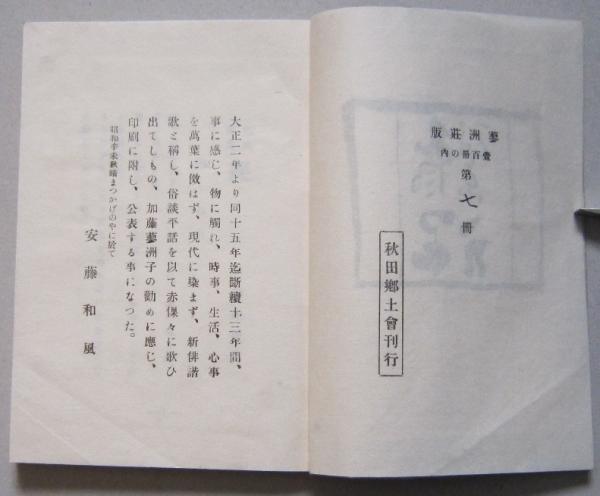 蓼洲莊版
壹百冊の內
第七冊
秋田鄕土會刊行
大正二年より同十五年迄斷續十三年間、
事に感じ、物に觸れ、時事、生活、心事
を萬葉に倣はず、現代に染まず、新俳諧
歌と稱し、俗談平話を以て赤倮々に歌ひ
出てしもの、加藤蓼洲子の勸めに應じ、
印刷に附し、公表する事になつた。
昭和辛未秋晴まつかげのやに於て
安藤和風